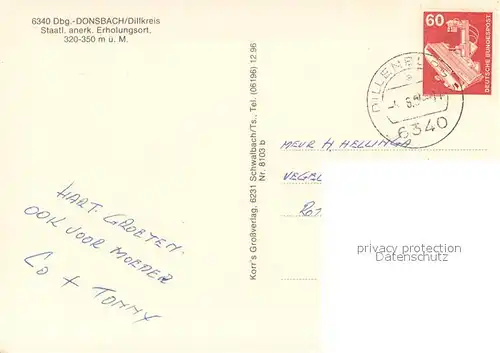 6340 Dbg.-DONSBACH/Dillkreis
Staatl. anerk. Erholungsort.
320-350 m ü. M.
HART. GROETEN.
OOK VOOR MOEDER
CO + TOMMY
Korr's Großverlag, 6231 Schwalbach/Ts., Tel. (06196) 12 96
Nr. 8103 b
60
DEUTSCHE BUNDESPOST
6340
MEVR H. HELLINGA
privacy protection
Datenschutz